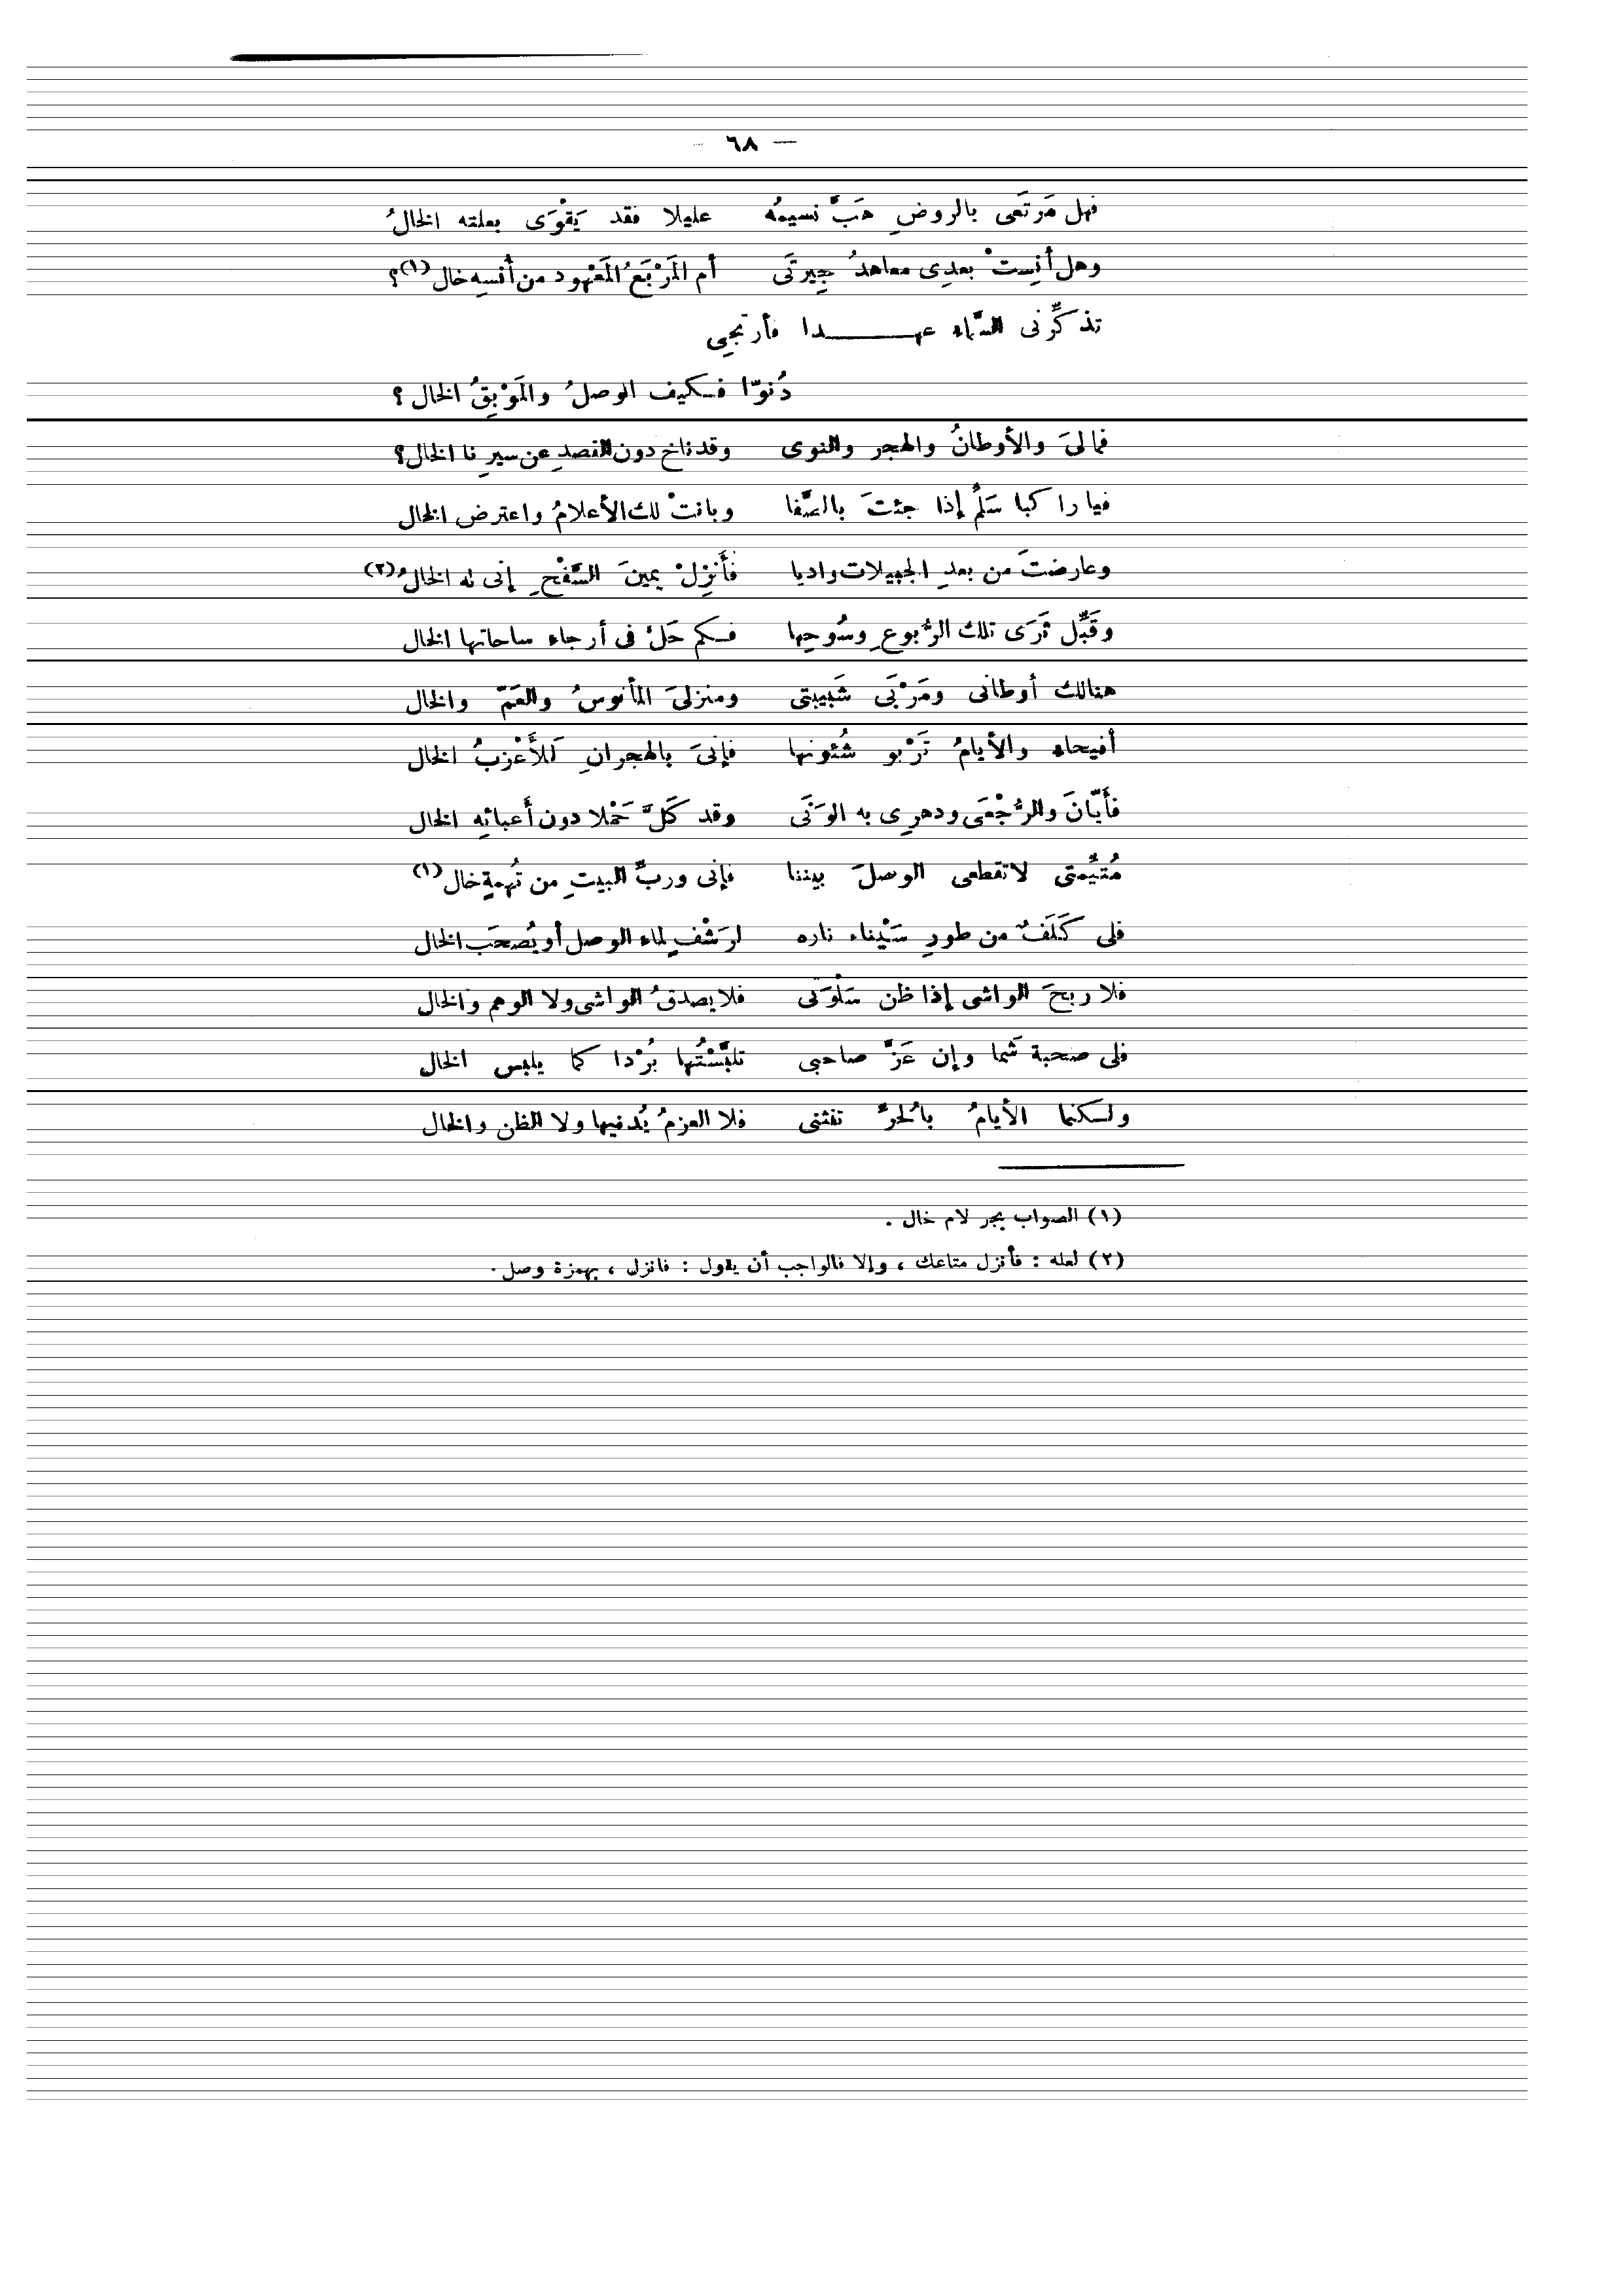 — ٦٨ —
فهل مَرتَعى بالروضِ هَبَّ نسيمُه عليلا فقد يَقْوَى بعلته الخالُ
وهل أنِستْ بعدِى معاهدُ جِيرتَى أم المَرْبَعُ المَعْهود من أُنسِه خال (١)؟
تذكرِّنى السَّراء عهــــدا فأرتجِى
دُنوّا فكيف الوصلُ والمَوْبِقُ الخال؟
فمالىَ والأوطانُ والهجر والنوى وقدناخ دون القصدِ عن سيرِنا الخال؟
فيا راكبا سَلمْ إذا جئتَ بالصَّفا وبانتْ لك الأعلامُ واعترض الخال
وعارضتَ من بعدِ الجبيلات واديا فأَنزِلْ يمينَ السَّفْحِ إنى له الخالُ (٢)
وقَبِّل ثَرَى تلك الرُّبوعِ وسُوحِها فكم حَلَّ فى أرجاء ساحاتها الخال
هنالك أوطانى ومَرْبَى شَبيبتى ومنزلىَ المأنوسُ والعَمّ والخال
أفيحاء والأيامُ تَرْبو شُئونها فإنىَ بالهجرانِ لَلأَعْزبُ الخال
فأَيّانَ والرُّجْعَى ودهرِى به الوَنَى وقد كَلَّ حَمْلا دون أَعبائِه الخال
مُتيِّمتى لاتقطعى الوصلَ بيننا فإنى وربِّ البيتِ من تُهمةٍ خال (١)
فلى كَلَفٌ من طورِ سَيْناء ناره لرَشْفٍ لماء الوصل أو يُصحَب الخال
فلا ربحَ الواشى إذا ظن سَلْوَتى فلا يصدقُ الواشى ولا الوهم والخال
فلى صحبة شما وإن عَزَّ صاحبى تلبَّسْتُها بُرْدا كما يلبس الخال
ولكنما الأيامُ بالحُرِّ تنثنى فلا العزمُ يُدنيها ولا الظن والخال
(١) الصواب بجر لام خال .
(٢) لعله : فأنزل متاعك ، وإلا فالواجب أن يقول : فانزل ، بهمزة وصل .